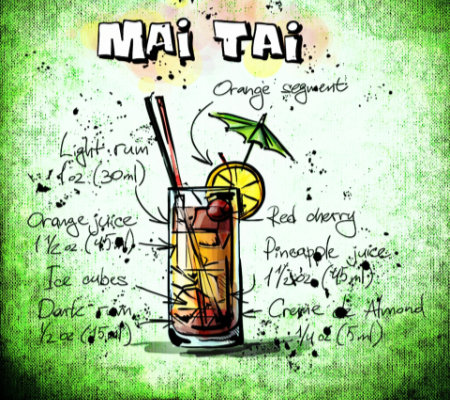 MAI TAI
Orange segment
Light rum
1 oz (30ml)
Orange juice
1 1/2 oz (45ml)
Ice cubes
Dark rum
1/2 oz (15ml)
Red cherry
Pineapple juice
1 1/2 oz (45ml)
Creme de Almond
1/4 oz (5ml)